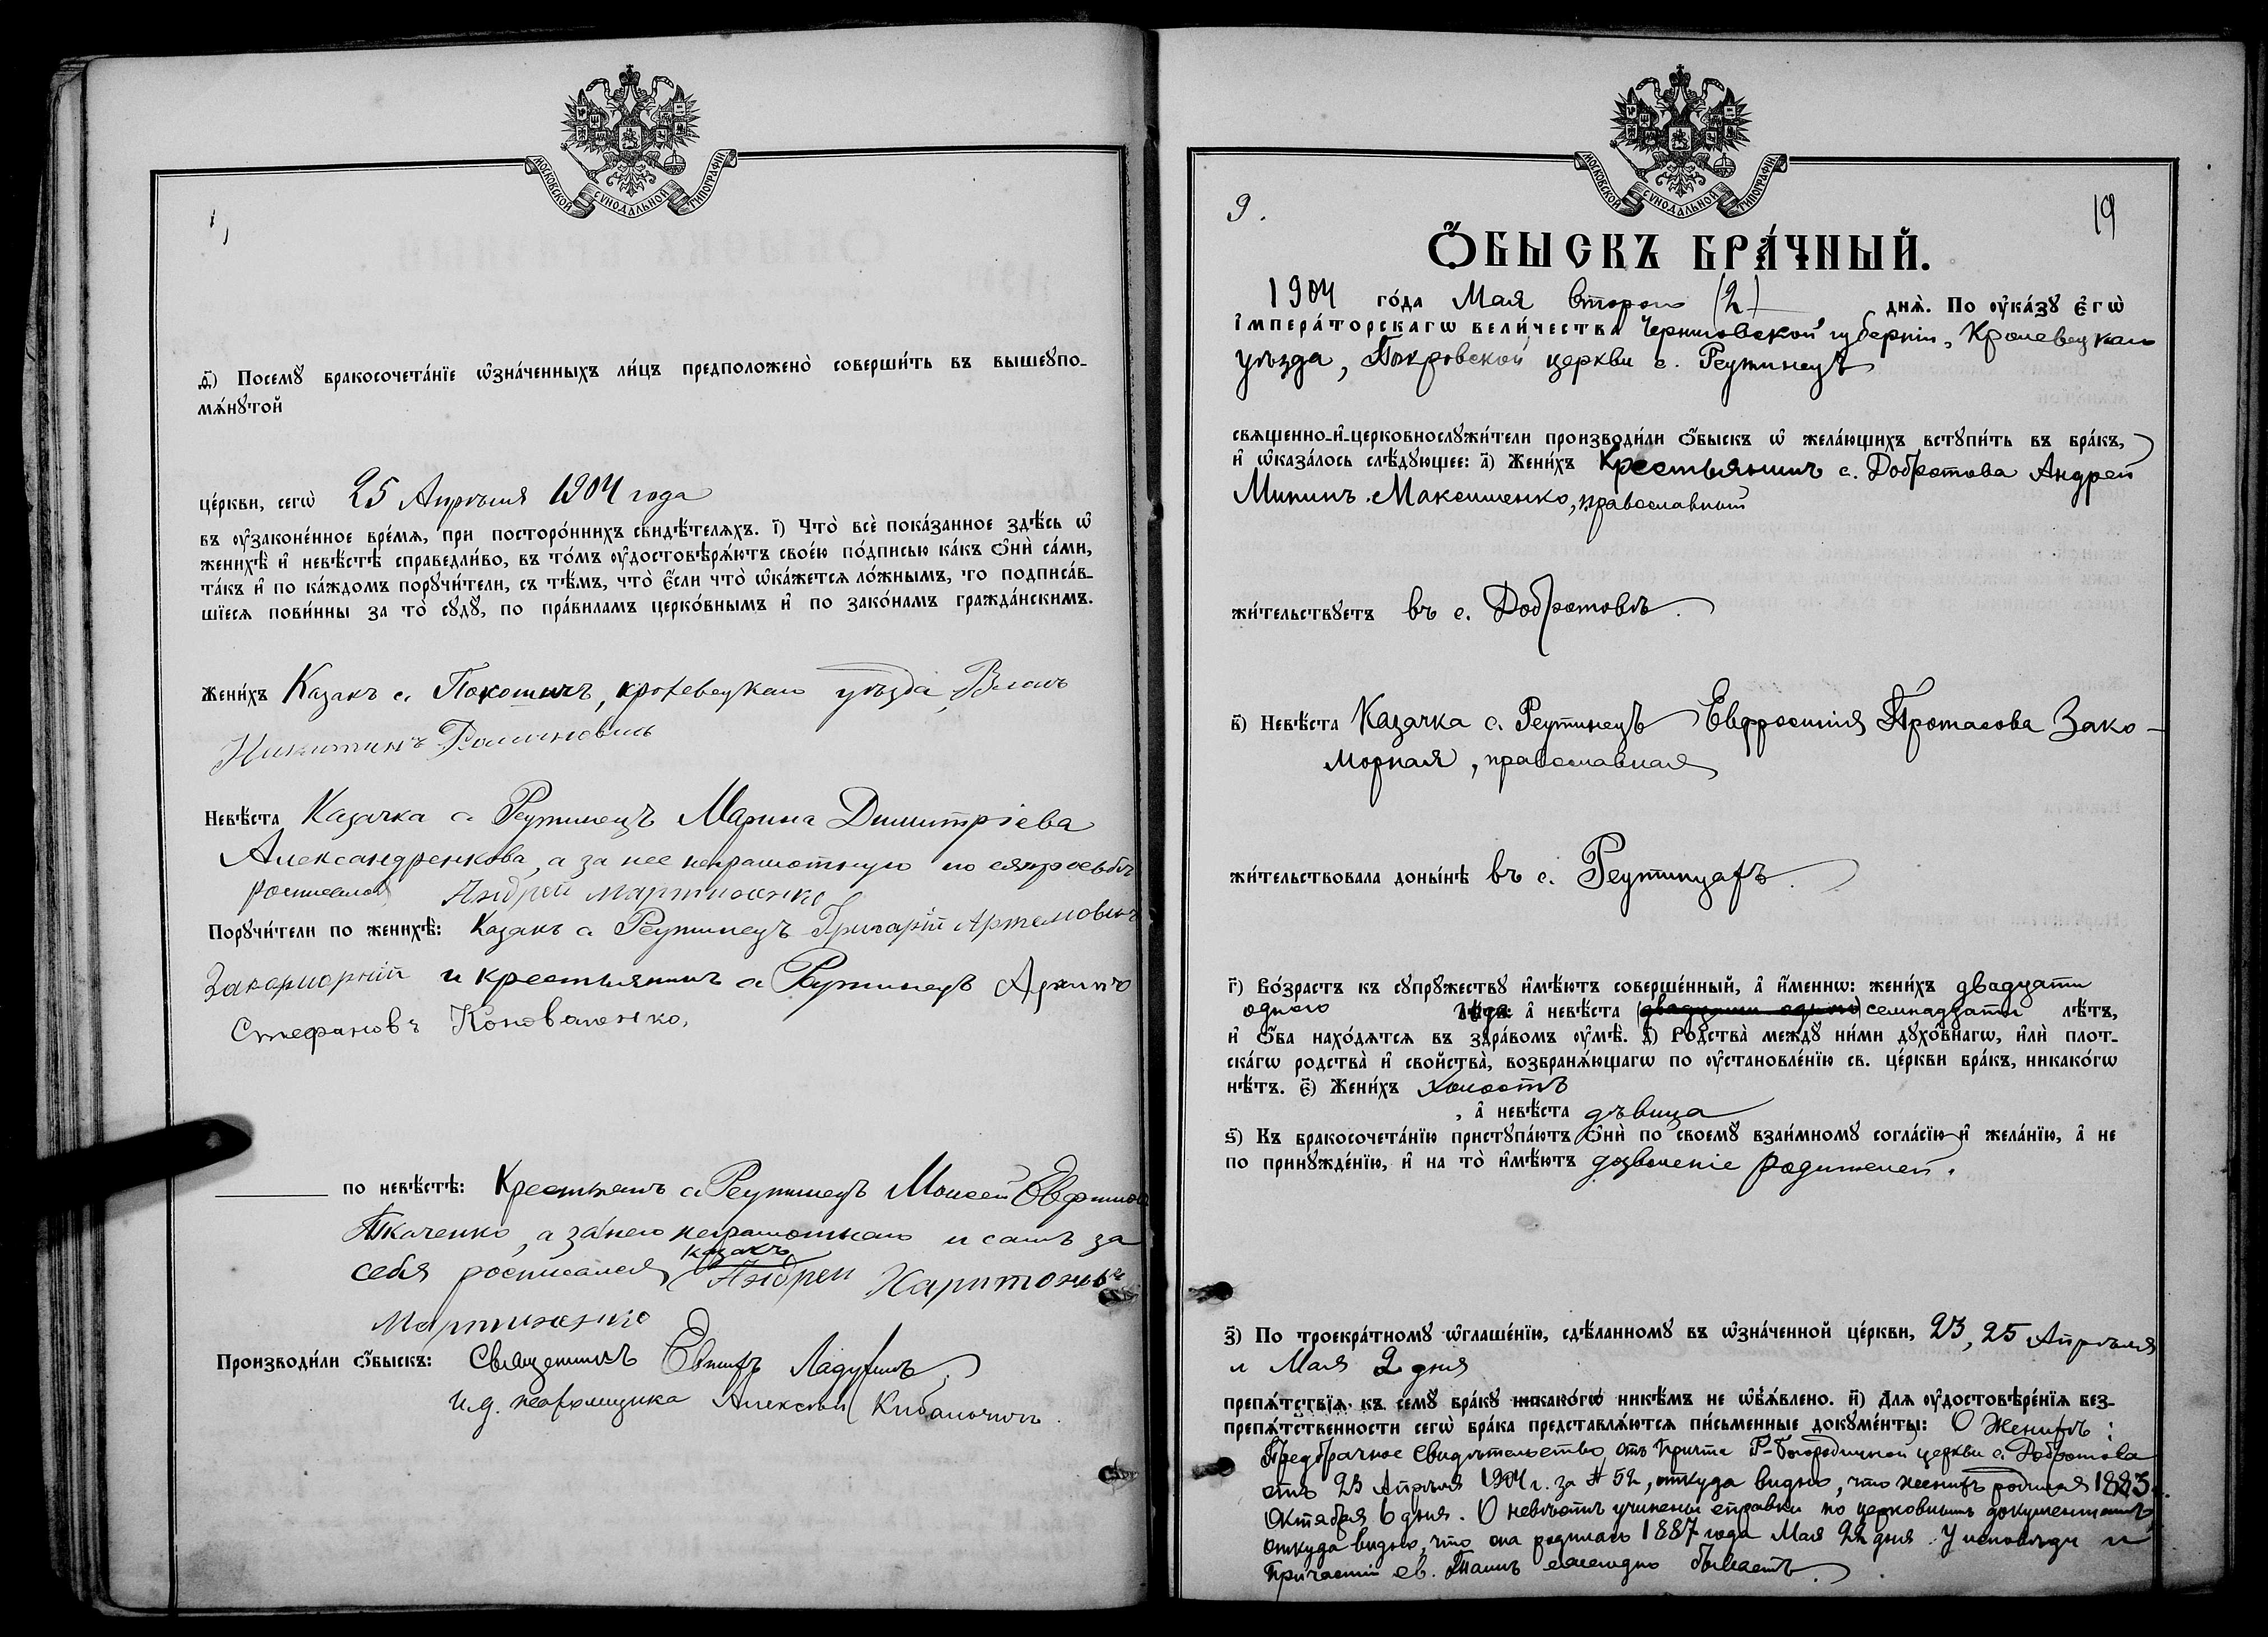 МОСКОВСКОЙ СѴНОДАЛЬНОЙ ТИПОГРАФІИ
ѳ҃) Посемꙋ̀ бракосочета́нїе ѡ҆зна́ченныхъ ли́цъ предположено̀ соверши́ть въ вышеꙋпо-
мѧ́нꙋтой
це́ркви, сегѡ̀ 25 Апрѣля 1904 года
въ ᲂу҆законе́нное вре́мѧ, при посторо́ннихъ свидѣ́телѧхъ. і҃) Что̀ всѐ пока́занное здѣ́сь ѡ҆
женихѣ̀ и҆ невѣ́стѣ справедли́во, въ то́мъ ᲂу҆достовѣрѧ́ютъ свое́ю по́дписью ка́къ ѻ҆нѝ са́ми,
та́къ и҆ по ка́ждомъ порꙋчи́тели, съ тѣ́мъ, что̀ є҆́сли что̀ ѡ҆ка́жетсѧ ло́жнымъ, то подписа́в-
шїесѧ пови́нны за то̀ сꙋдꙋ̀, по пра́виламъ церко́внымъ и҆ по зако́намъ гражда́нскимъ.
Жени́хъ Казакъ с. Покошичъ, кролевецкаго уѣзда, Власъ
Никитинъ
Невѣ́ста Казачка с. Реутинецъ Марина Димитріева
Александренкова, а за нее неграмотную по ея просьбѣ
росписался Андрей Мартиненко
Порꙋчи́тели по женихѣ̀: Казакъ с. Реутинецъ Григорій Артемовичъ
Закоморний и крестьянинъ с. Реутинецъ Архипъ
Стефановъ Коноваленко.
по невѣ́стѣ: Крестьян. с. Реутинецъ Моисей Евфимов
Ткаченко, а за него неграмотнаго и самъ за
себя росписался казакъ Андрей Харитонов
Мартиненко
Производи́ли ѻ҆́быскъ: Священникъ Евфимъ
и. д. псаломщика Алексѣй
МОСКОВСКОЙ СѴНОДАЛЬНОЙ ТИПОГРАФІИ
9. 19
Ѻ҆́БЫСКЪ БРА́ЧНЫЙ.
1904 го́да Мая второго (2) днѧ̀. По ᲂу҆ка́зꙋ Є҆гѡ̀
І҆мпера́торскагѡ вели́чества Черниговской губерніи, Кролевецкаго
уѣзда, Покровской церкви с. Реутинецъ
свѧщенно-и҆-церковнослꙋжи́тели производи́ли ѻ҆́быскъ ѡ҆ жела́ющихъ встꙋпи́ть въ бра́къ,
и҆ ѡ҆каза́лось слѣ́дꙋющее: а҃) Жени́хъ Крестьянинъ с. Добротова Андрей
Мининъ Максименко, православный
жи́тельствꙋетъ въ с. Добротовѣ.
в҃) Невѣ́ста Казачка с. Реутинецъ Евфросинія Протасова Зако-
морная, православная
жи́тельствовала доны́нѣ въ с. Реутинцахъ.
г҃) Во́зрастъ къ сꙋпрꙋ́жествꙋ и҆мѣ́ютъ соверше́нный, а҆ и҆́меннѡ: жени́хъ двадцати
одного лѣ́тъ: а҆ невѣ́ста (двадцати одного) семнадцати лѣ́тъ,
и҆ ѻ҆́ба нахо́дѧтсѧ въ здра́вомъ ᲂу҆мѣ̀. д҃) Родства̀ междꙋ ни́ми дꙋхо́внагѡ, и҆лѝ плот-
ска́гѡ родства̀ и҆ свойства̀, возбранѧ́ющагѡ по ᲂу҆становле́нїю св. це́ркви бра́къ, никако́гѡ
нѣ́тъ. є҃) Жени́хъ холостъ
, а҆ невѣ́ста дѣвица
ѕ҃) Къ бракосочета́нїю пристꙋпа́ютъ ѻ҆нѝ по своемꙋ̀ взаи́мномꙋ согла́сїю и҆ жела́нїю, а҆ не
по принꙋжде́нїю, и҆ на то̀ и҆мѣ́ютъ дозволеніе родителей.
з҃) По троекра́тномꙋ ѡ҆глаше́нїю, сдѣ́ланномꙋ въ ѡ҆зна́ченной це́ркви, 23, 25 Апрѣля
и Мая 2 дня
препѧ́тствїѧ къ семꙋ̀ бра́кꙋ никако́гѡ никѣ́мъ не ѡ҆б̾ѧ́влено. и҃) Длѧ ᲂу҆достовѣре́нїѧ без-
препѧ́тственности сегѡ̀ бра́ка представлѧ́ютсѧ пи́сьменные докꙋме́нты: О Женихѣ:
Предбрачное свидѣтельство отъ причта Р-Богородичной церкви с. Добротова
отъ 23 Апрѣля 1904 г. за № 52, откуда видно, что женихъ родился 1883 г.
Октября 6 дня. О невѣстѣ учинены справки по церковнымъ документамъ,
откуда видно, что она родилась 1887 года Мая 22 дня. У исповѣди и
причастія св. Таинъ ежегодно бываетъ.